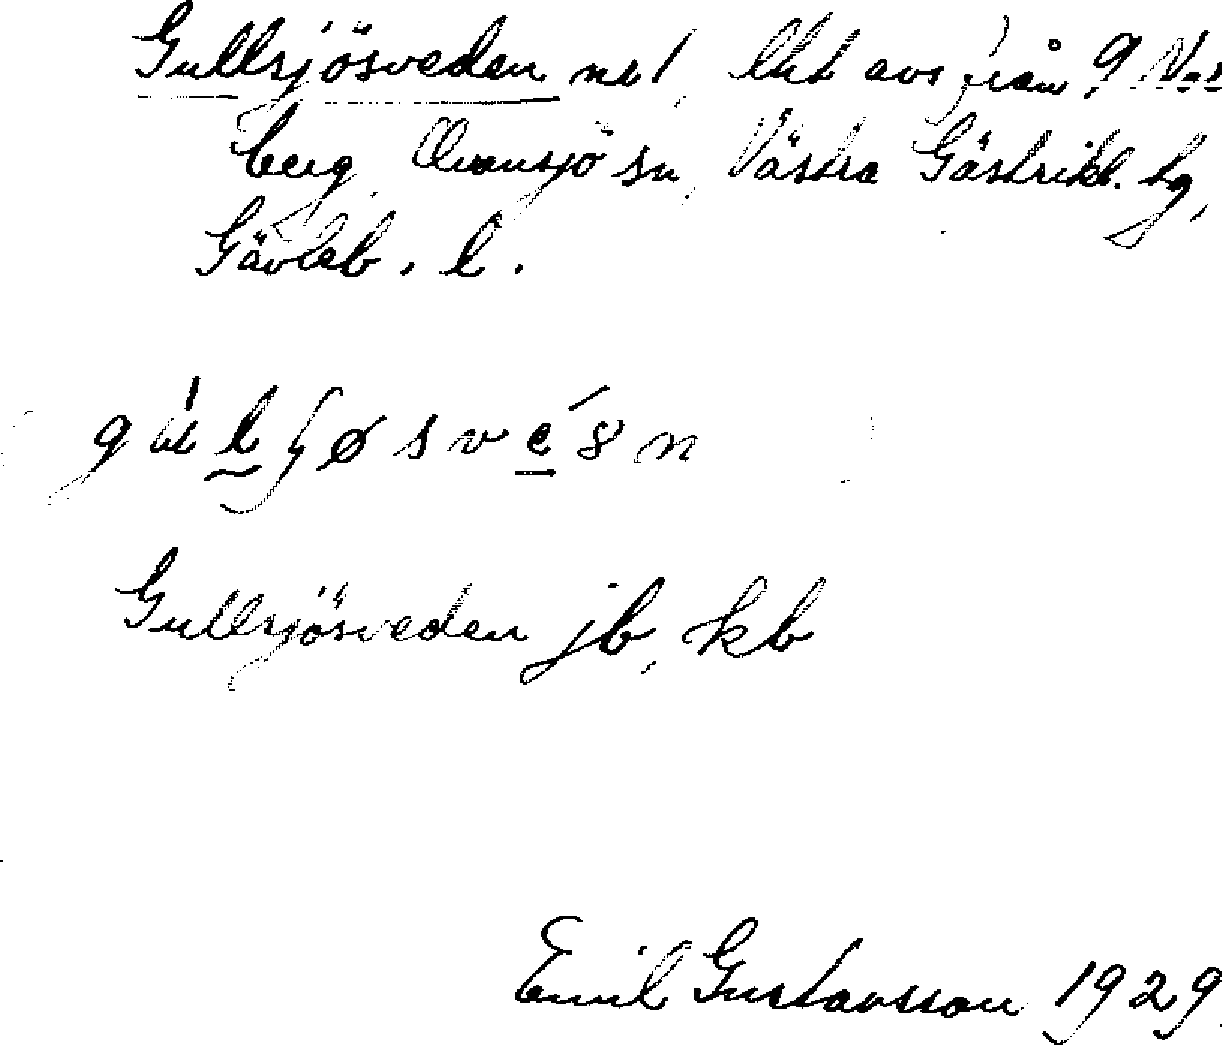 Gullsjösveden nr 1, lht avs från 9 Nas
berg, Ovansjö sn, Västra Gästrikl. tg,
Gävleb. l.
Gullsjösveden jb, kb
Emil Gustavsson 1929.